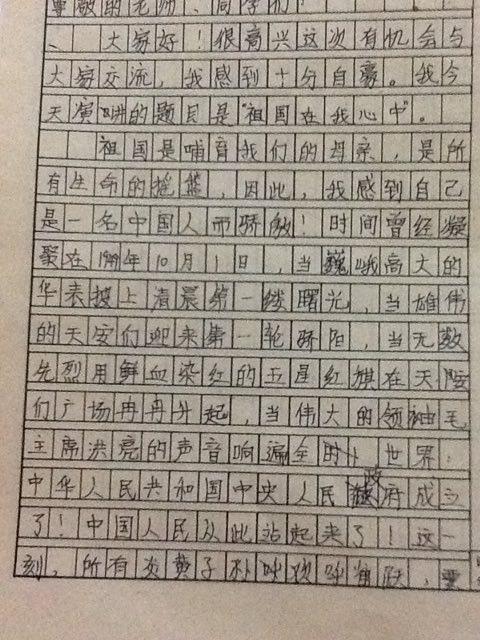 尊敬的老师、同学们!
、大家好!很高兴这次有机会与
大家交流,我感到十分自豪。我今
天演讲的题目是"祖国在我心中"。
祖国是哺育我们的母亲,是所
有生命的摇篮,因此,我感到自己
是一名中国人而骄傲!时间曾经凝
聚在1949年10月1日,当巍峨高大的
华表披上清晨第一缕曙光,当雄伟
的天安们迎来第一轮骄阳,当无数
先烈用鲜血染红的五星红旗在天安
们广场冉冉升起,当伟大的领袖毛
主席洪亮的声音响遍全世界:
中华人民共和国中央人民政府成立
了!中国人民从此站起来了!这一
刻,所有炎黄子孙呼欢呼雀跃,